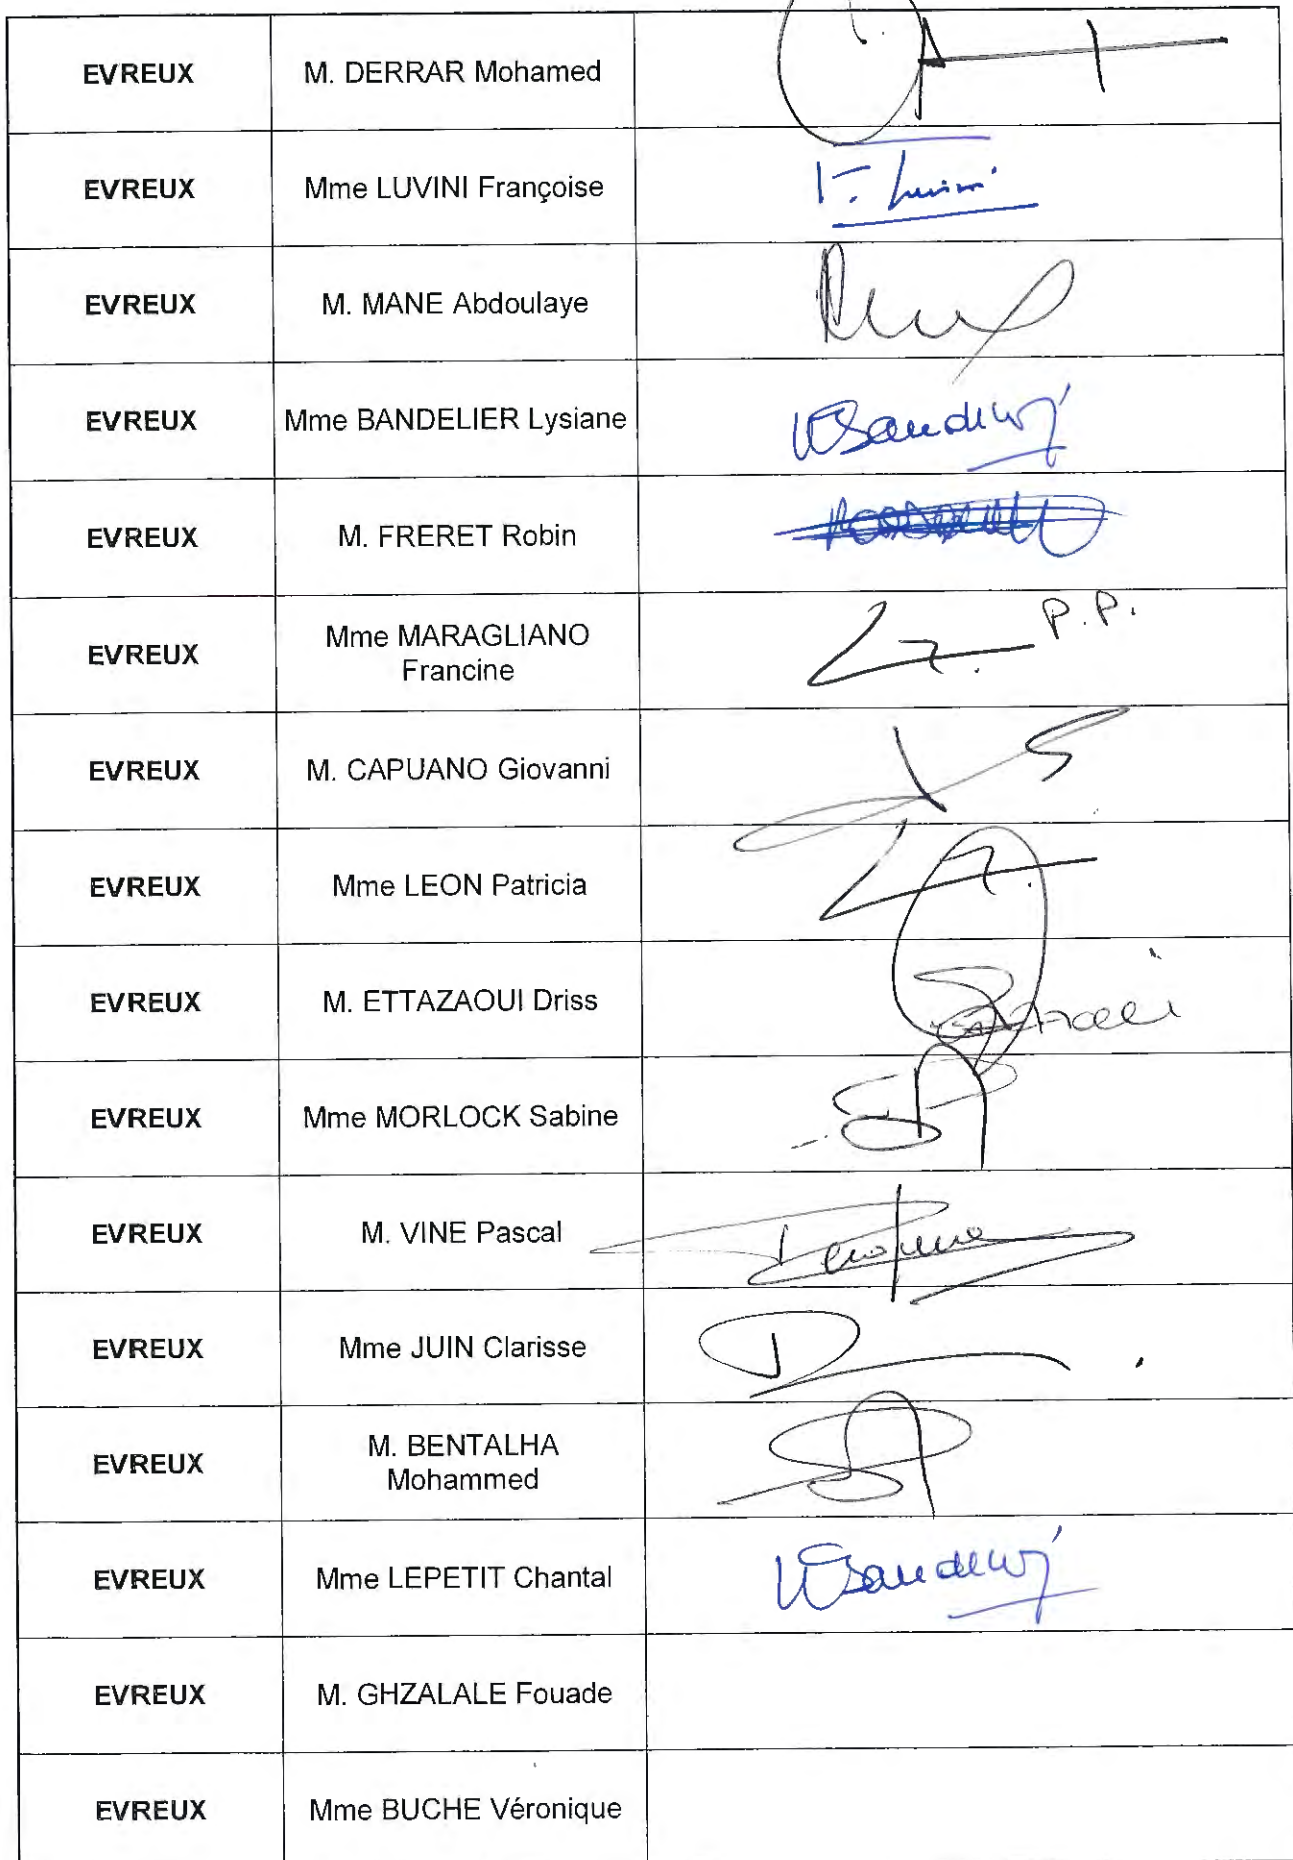 EVREUX M. DERRAR Mohamed
EVREUX Mme LUVINI Françoise F. Luvini
EVREUX M. MANE Abdoulaye
EVREUX Mme BANDELIER Lysiane
EVREUX M. FRERET Robin
EVREUX Mme MARAGLIANO
Francine P.P.
EVREUX M. CAPUANO Giovanni
EVREUX Mme LEON Patricia
EVREUX M. ETTAZAOUI Driss
EVREUX Mme MORLOCK Sabine
EVREUX M. VINE Pascal
EVREUX Mme JUIN Clarisse
EVREUX M. BENTALHA
Mohammed
EVREUX Mme LEPETIT Chantal
EVREUX M. GHZALALE Fouade
EVREUX Mme BUCHE Véronique